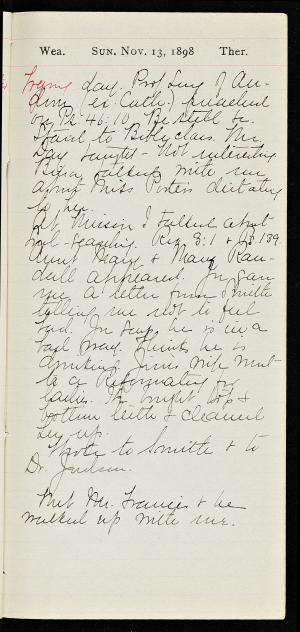 Wea. SUN. NOV. 13, 1898 Ther.
Trying day. Prof. of An-
(ex. Cuth.) preached
on Ps. 46:10. Be still &c.
Stayed to Bible class. Mr.
Day taught - Not interesting
talked with me
about Miss Porter's dictating
to her.
At Mission I talked about
Rev. 3:1 & Ps 139
Aunt Mary & Mary Ran-
dall appeared. Jn gave
me a letter from Smith
telling me not to feel
bad. Jn says he is in a
bad way. Thinks he is
drinking. Jim's wife went
to a Reformatory for
ladies. He bought top &
bottom teeth & cleaned
her up.
Wrote to Smith & to
Dr. Judson.
Met Mr. Francis & he
walked up with me.